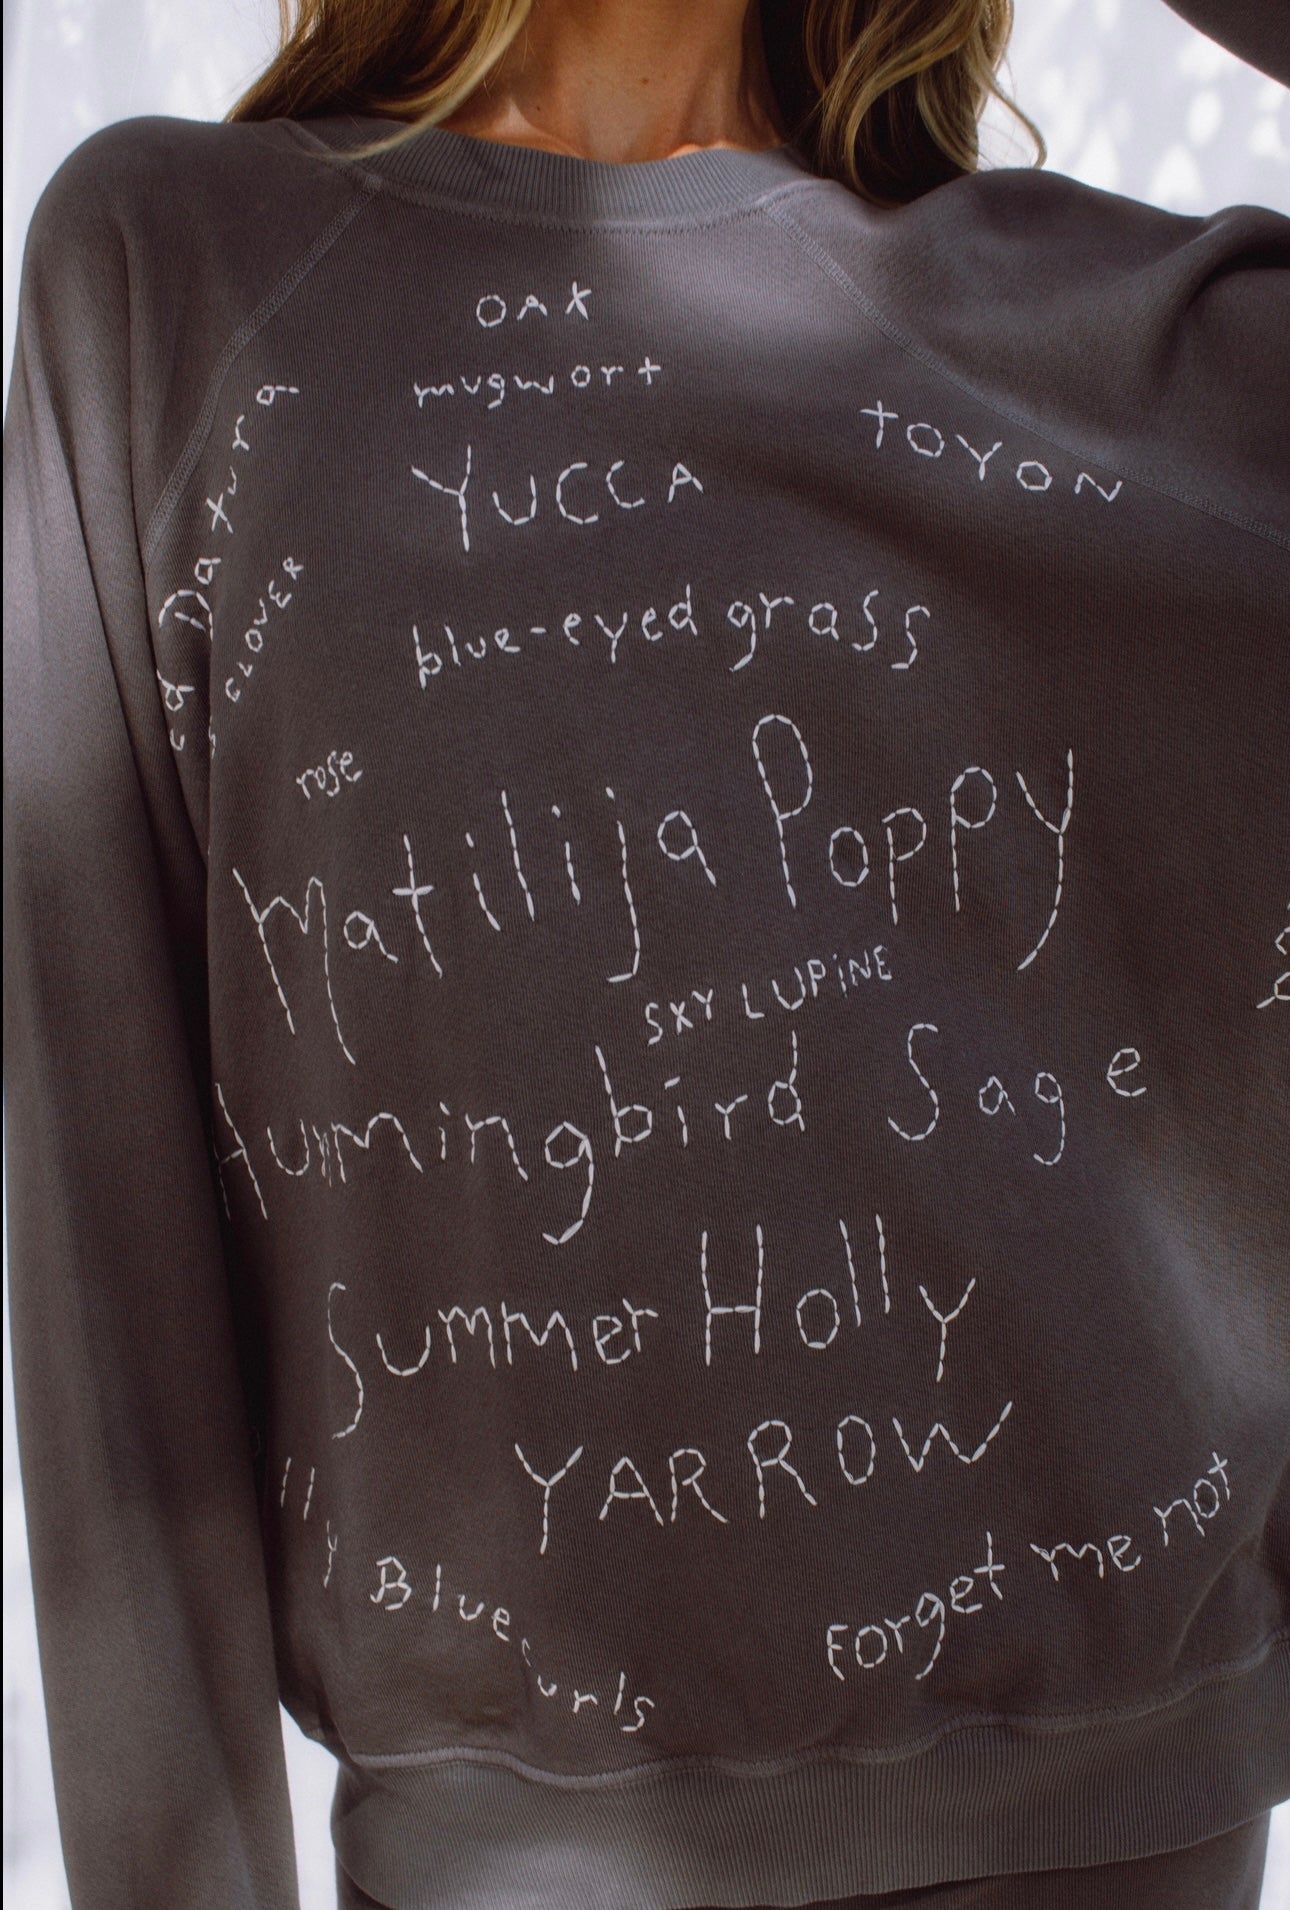 OAK
mugwort
TOYON
Datura
YUCCA
CLOVER
blue-eyed grass
rose
Matilija Poppy
SKY LUPiNE
Hummingbird Sage
Summer Holly
YARROW
Forget me not
lly Bluecurls